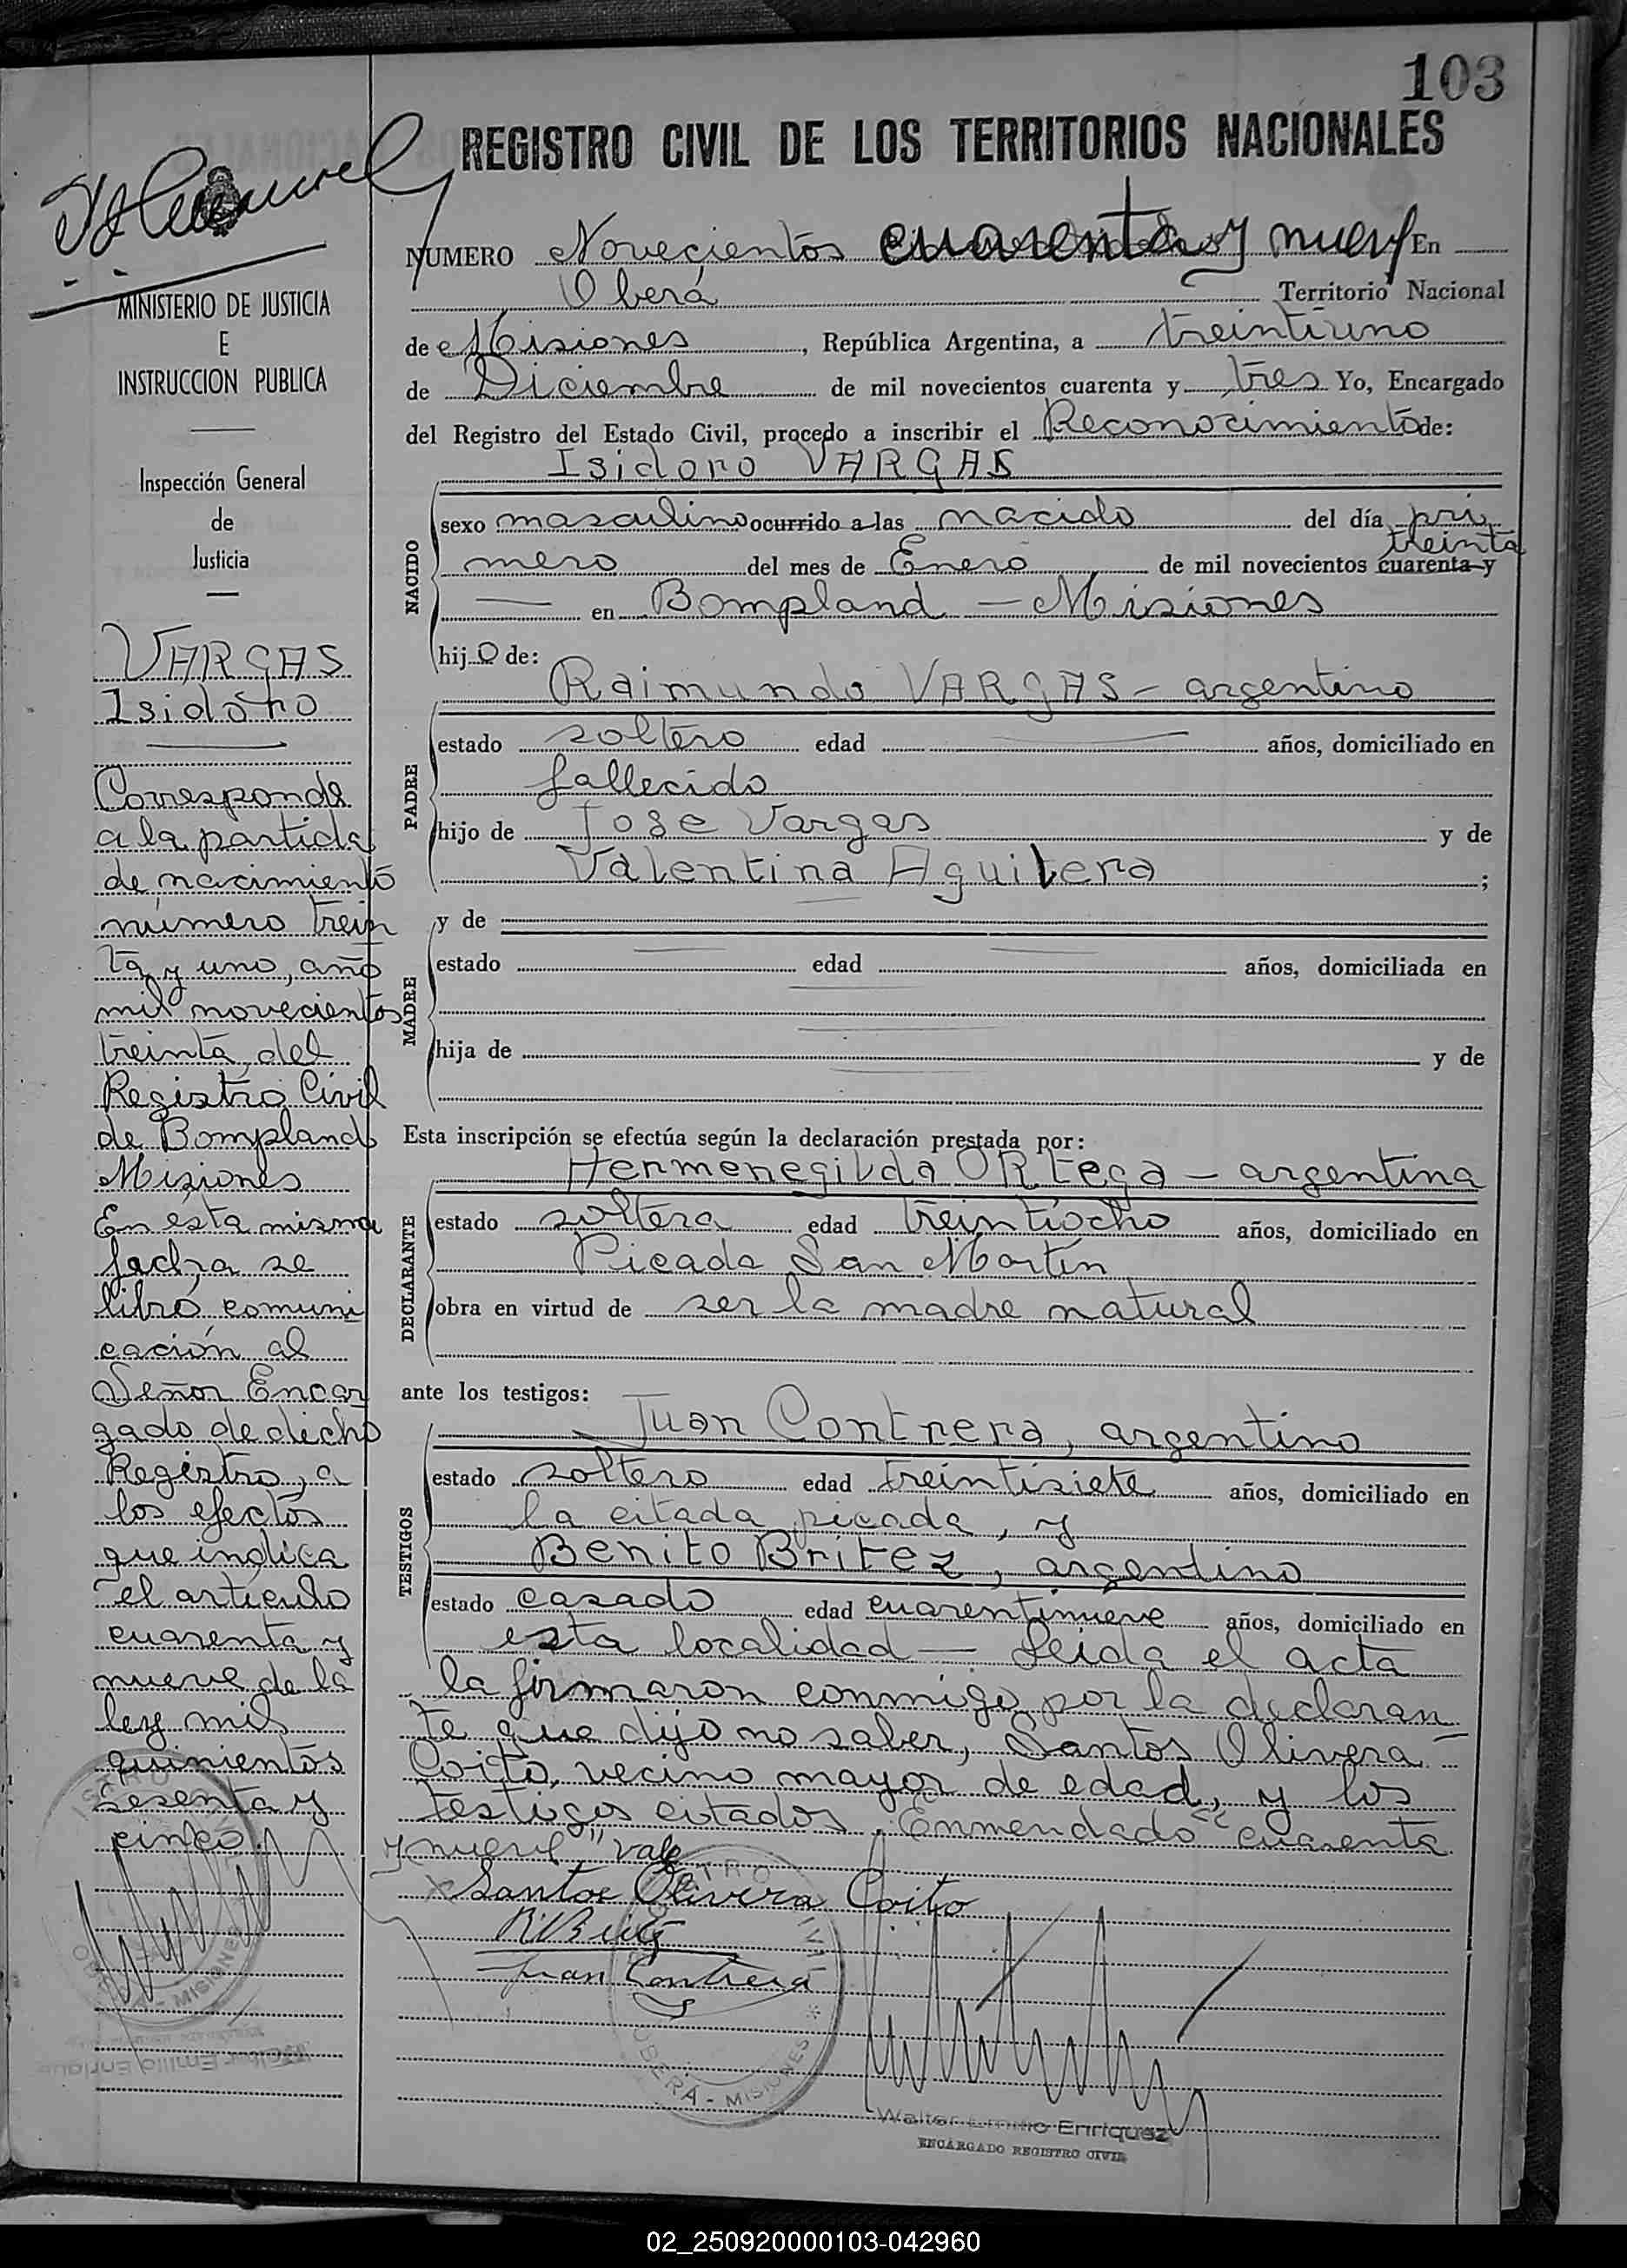 103
REGISTRO CIVIL DE LOS TERRITORIOS NACIONALES
MINISTERIO DE JUSTICIA
E
INSTRUCCION PUBLICA
Inspección General
de
Justicia
VARGAS
Isidoro
Corresponde
a la partida
de nacimiento
número trein
ta y uno, año
mil novecientos
treinta, del
Registro Civil
de Bompland
Misiones
En ésta misma
fecha se
libró comuni
cación al
Señor Encar
gado de dicho
Registro, a
los efectos
que indica
el artículo
cuarenta y
nueve de la
ley mil
quinientos
sesenta y
cinco.
NUMERO Novecientos cuarenta y nueve En
Oberá Territorio Nacional
de Misiones, República Argentina, a treintiuno
de Diciembre de mil novecientos cuarenta y tres Yo, Encargado
del Registro del Estado Civil, procedo a inscribir el Reconocimiento de:
Isidoro VARGAS
NACIDO
sexo masculino ocurrido a las nacido del día pri
treinta
mero del mes de Enero de mil novecientos cuarenta y
— en Bompland — Misiones
hijo de:
Raimundo VARGAS - argentino
PADRE
estado soltero edad — años, domiciliado en
fallecido
hijo de Jose Vargas y de
Valentina Aguilera ;
y de
MADRE
estado edad años, domiciliada en
hija de y de
Esta inscripción se efectúa según la declaración prestada por:
Hermenegilda ORtega - argentina
DECLARANTE
estado soltera edad treintiocho años, domiciliado en
Picada San Martín
obra en virtud de ser la madre natural
ante los testigos:
Juan Contrera, argentino
TESTIGOS
estado soltero edad treintisiete años, domiciliado en
la citada picada, y
Benito Britez, argentino
estado casado edad cuarentinueve años, domiciliado en
esta localidad — Leida el acta
la firmaron conmigo por la declaran
te que dijo no saber, Santos Olivera
Coito, vecino mayor de edad, y los
testigos citados. Enmendado "cuarenta
y nueve" vale
x Santos Olivera Coito
Juan Contrera
OBERÁ - MISIONES
Walter Emilio Enriquez
ENCARGADO REGISTRO CIVIL
02_250920000103-042960